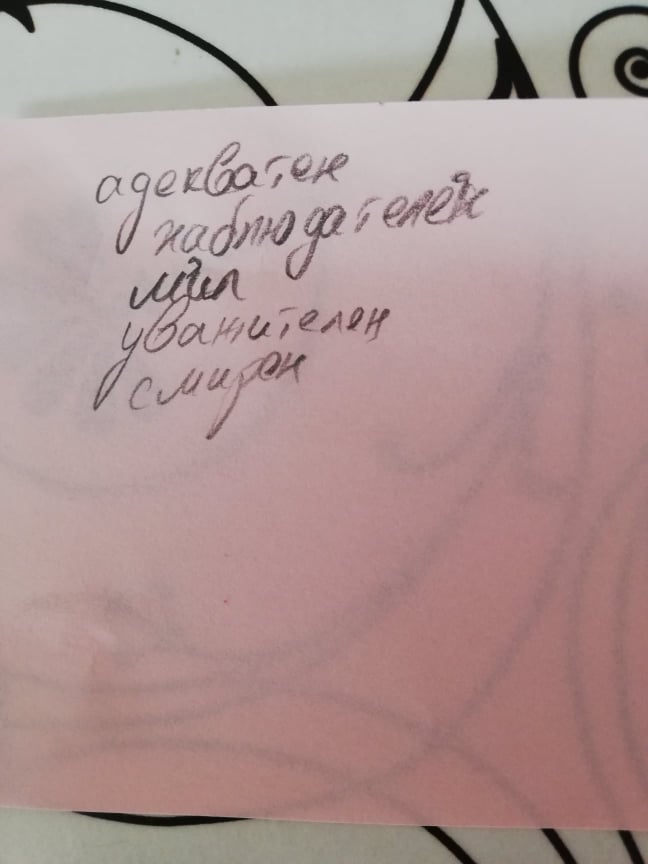 адекватен
наблюдателен
мил
уважителен
смирен